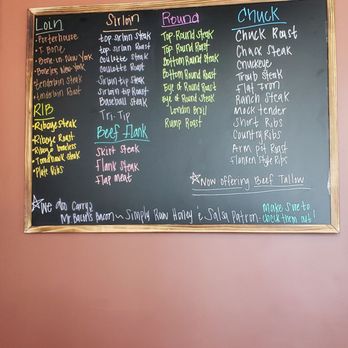 Loin
-Porterhouse
-T Bone
-Bone-in New York
-Boneless New York
-Tenderloin Steak
-Tenderloin Roast
RIB
-Ribeye Steak
-Ribeye Roast
-Ribeye boneless
-Tomahawk Steak
-Plate Ribs
Sirloin
Top sirloin steak
top sirloin Roast
coulotte steak
coulotte Roast
Sirloin tip Steak
Sirloin tip Roast
Baseball Steak
Tri-Tip
Beef Flank
Skirt Steak
Flank Steak
Flap meat
Round
Top Round Steak
Top Round Roast
Bottom Round Steak
Bottom Round Roast
Eye of Round Roast
Eye of Round Steak
London Broil
Rump Roast
Chuck
Chuck Roast
Chuck Steak
Chuckeye
Flat Iron
Ranch Steak
Mock Tender
Short Ribs
Country Ribs
Arm pit Roast
Flanken Style Ribs
Now Offering Beef Tallow
We also Carry:
Mr Bacon's Bacon ~ Simply Raw Honey & Salsa Patron.
Make Sure to
check them out!